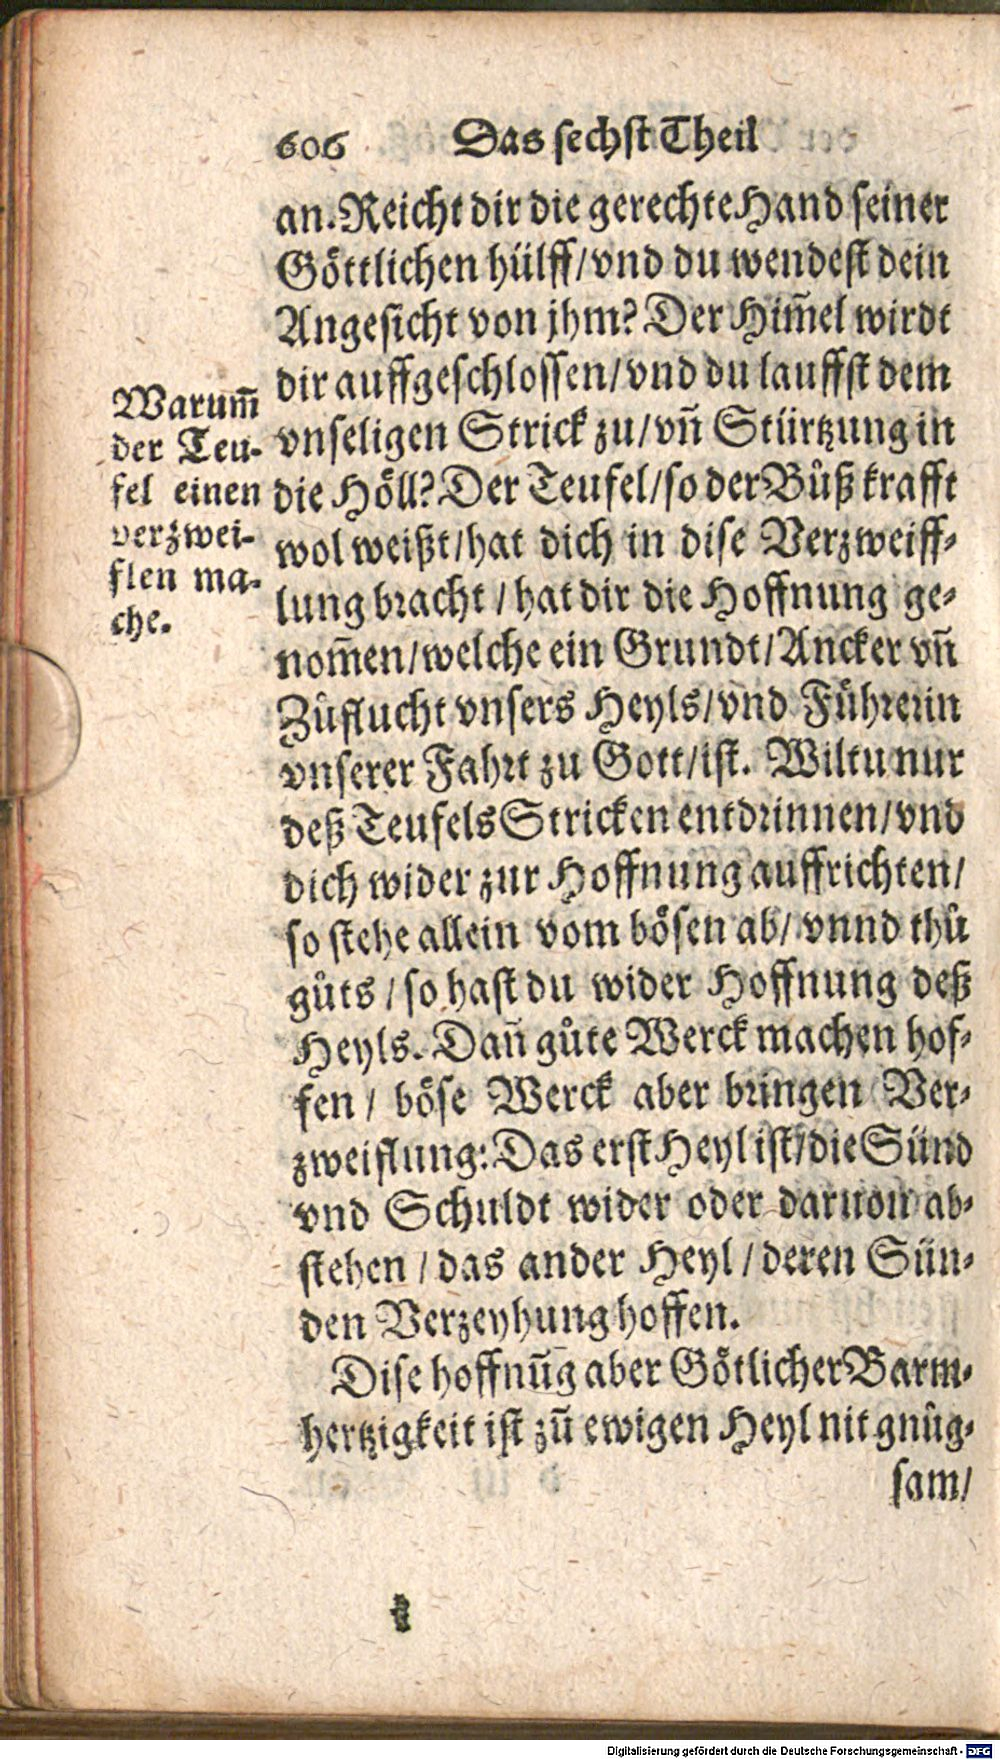 606 Das sechst Theil
an. Reicht dir die gerechte Hand seiner
Göttlichen hülff/vnd du wendest dein
Angesicht von jhm? Der Him̃el wirdt
dir auffgeschlossen/vnd du lauffst dem
vnseligen Strick zu/vn̄ Stürtzung in
die Höll? Der Teufel/so der Bůß krafft
wol weißt/hat dich in dise Verzweiff-
lung bracht/hat dir die Hoffnung ge-
nom̃en/welche ein Grundt/Ancker vn̄
Zůflucht vnsers Heyls/vnd Führerin
vnserer Fahrt zu Gott/ist. Wiltu nur
deß Teufels Stricken entdrinnen/vnd
dich wider zur Hoffnung auffrichten/
so stehe allein vom bösen ab/ vnnd thů
gůts/so hast du wider Hoffnung deß
Heyls. Dan̄ gůte Werck machen hof-
fen/ böse Werck aber bringen Ver-
zweiflung: Das erst Heyl ist/die Sünd
vnd Schuldt wider oder daruon ab-
stehen/das ander Heyl/deren Sün-
den Verzeyhung hoffen.
Dise hoffnūg aber Götlicher Barm-
hertzigkeit ist zū ewigen Heyl nit gnůg-
sam/
Warum̃
der Teu-
fel einen
verzwei-
flen ma-
che.
Digitalisierung gefördert durch die Deutsche Forschungsgemeinschaft - DFG